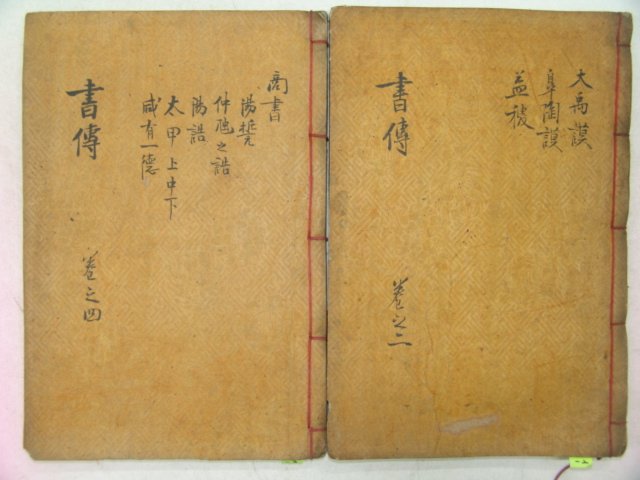 大禹謨
皐陶謨
益稷
書傳
卷之二
商書
湯誓
仲虺之誥
湯誥
太甲上中下
咸有一德
書傳
卷之四